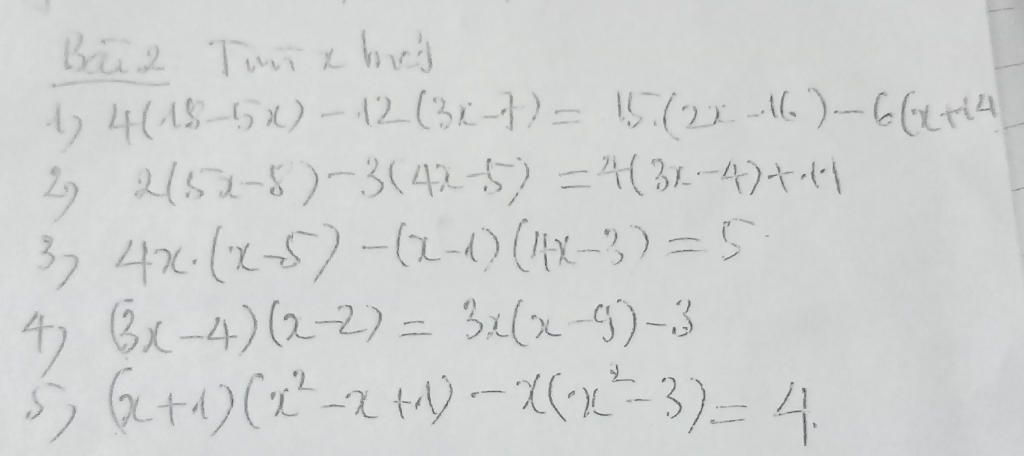 Bài 2 Tìm x biết
1) 4(18-5x) - 12(3x-7) = 15.(2x-16) - 6(x+14
2) 2(5x-8) - 3(4x-5) = 4(3x-4)+11
3) 4x.(x-5) - (x-1)(4x-3) = 5
4) (3x-4)(x-2) = 3x(x-9)-3
5) (x+1)(x²-x+1) - x(x²-3) = 4.